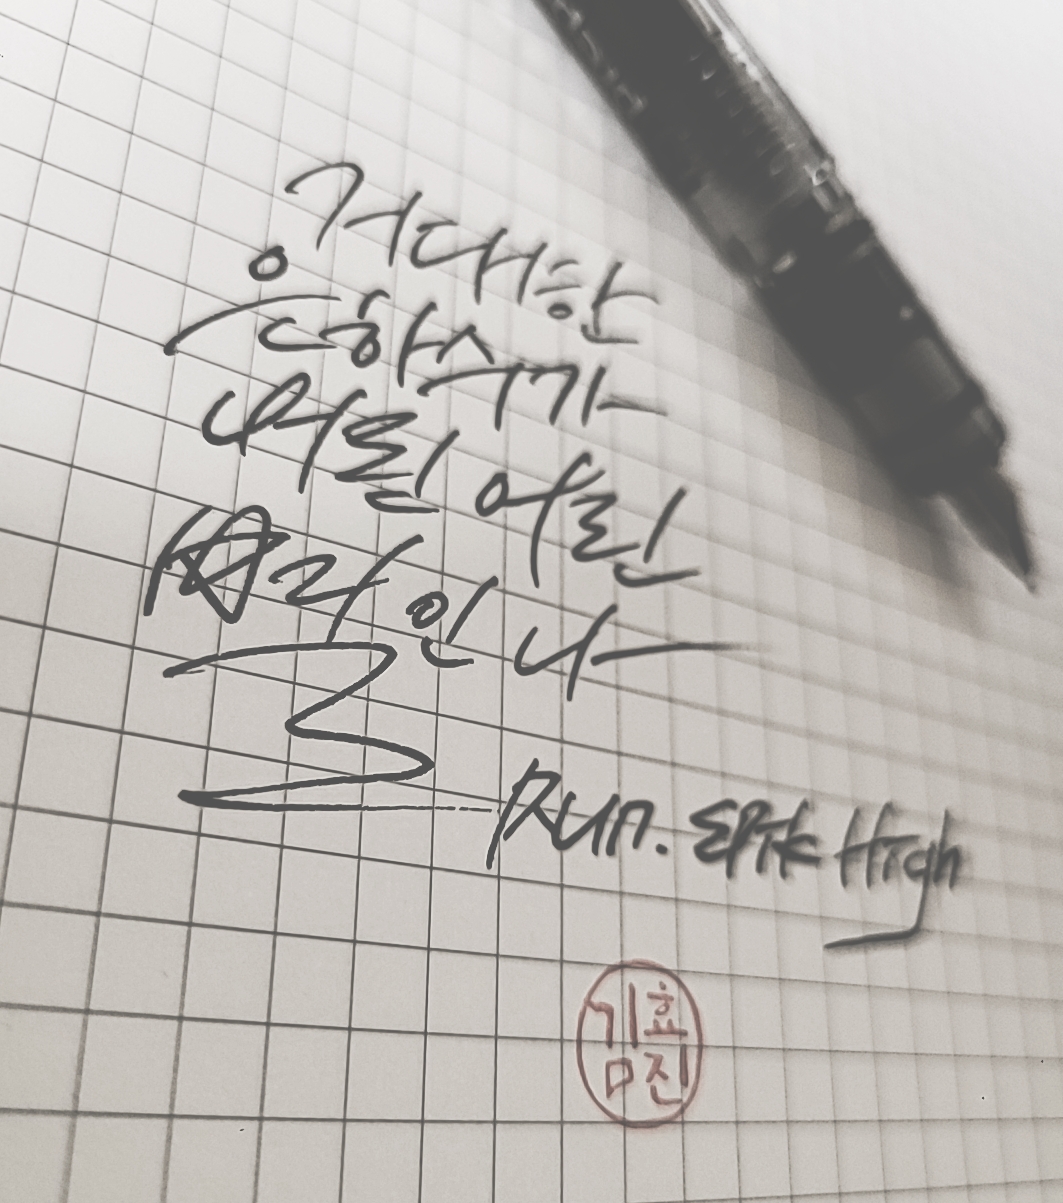 거대한
은하수가
버린 어린
나
Run. Epik High
김효진